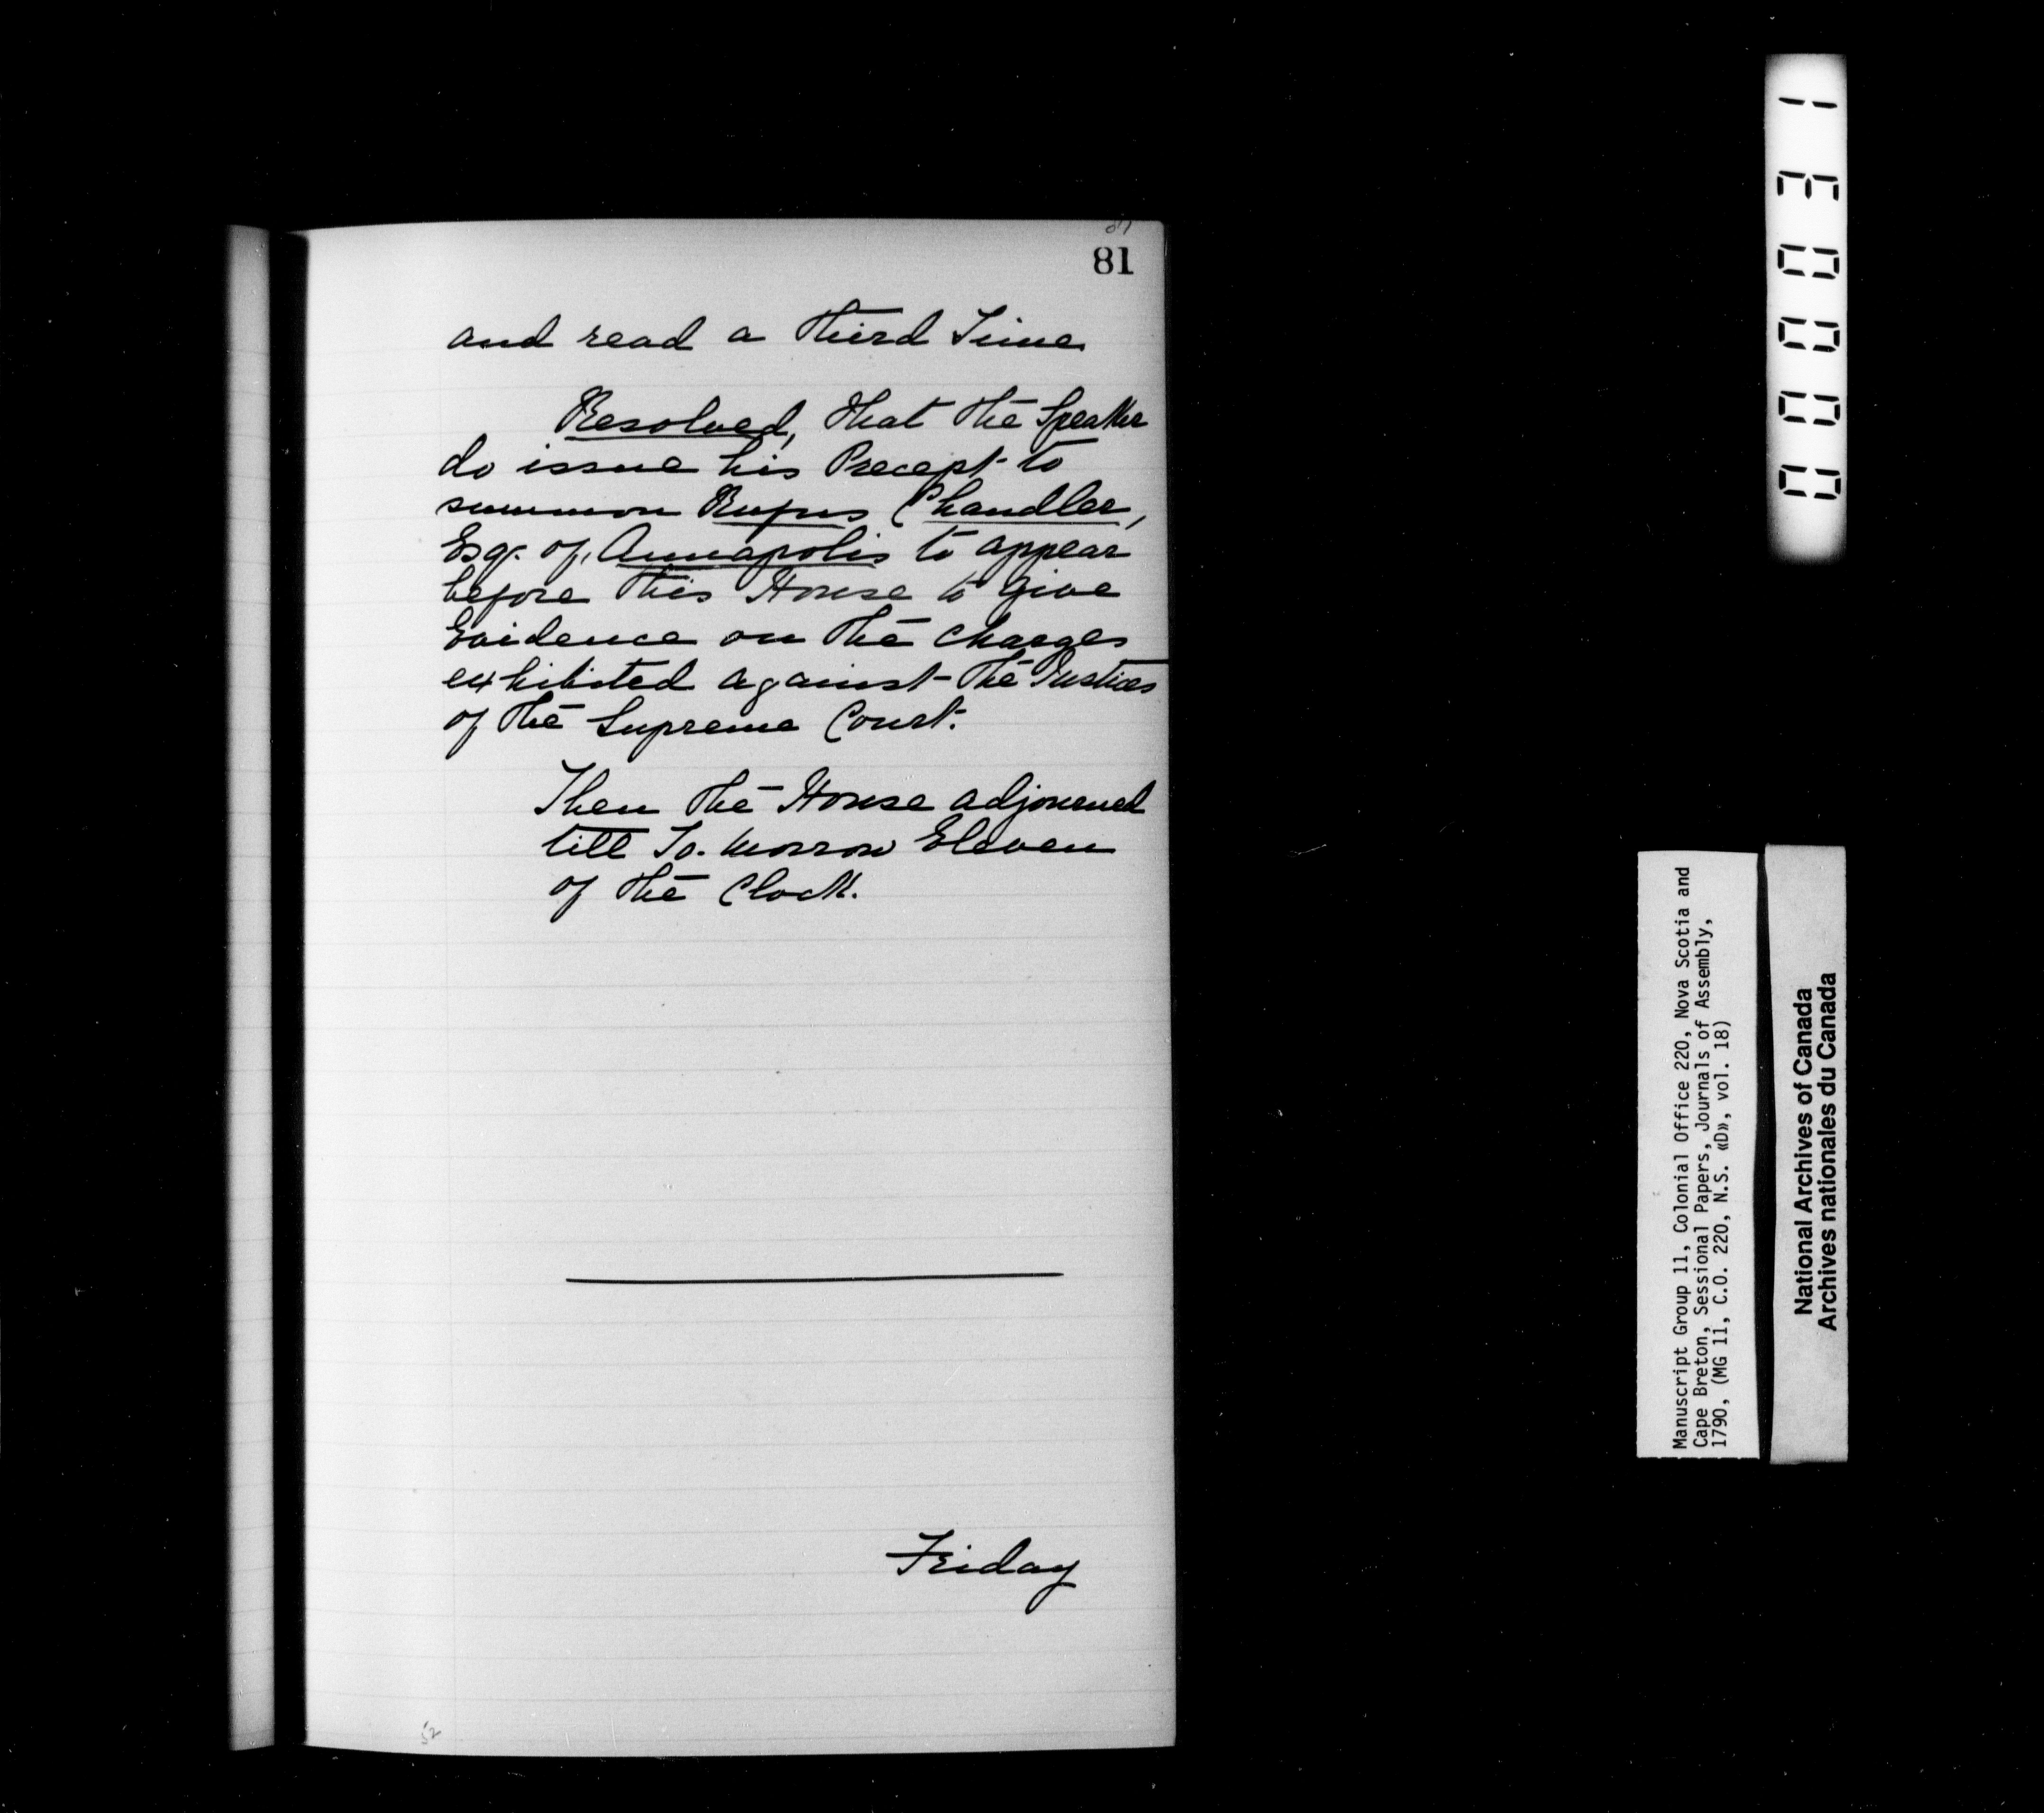 81
and read a third Time.
Resolved, that the Speaker
do issue his Precept to
summon Rufus Chandler,
Esqr. of Annapolis to appear
before this House to give
Evidence on the Charges
exhibited against the Justices
of the Supreme Court.
Then the House adjourned
till To-morrow Eleven
of the Clock.
Friday
000031
Manuscript Group 11, Colonial Office 220, Nova Scotia and
Cape Breton, Sessional Papers, Journals of Assembly,
1790, (MG 11, C.O. 220, N.S. «D», vol. 18)
National Archives of Canada
Archives nationales du Canada